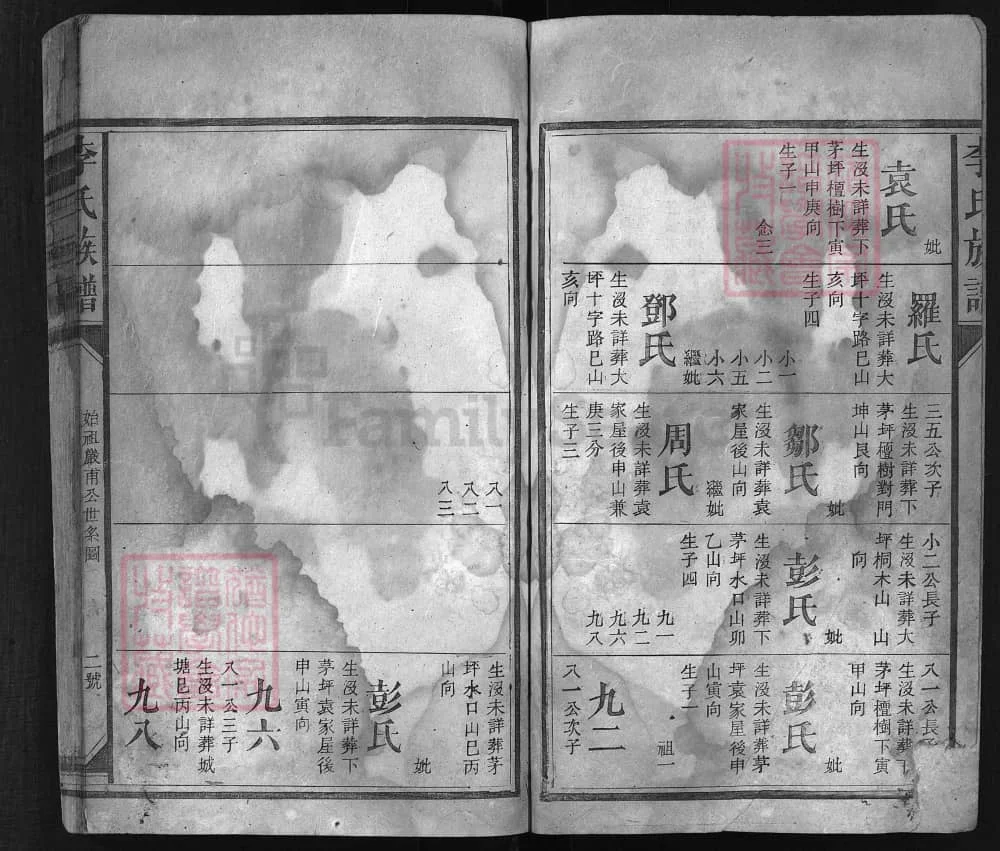 李氏族譜
妣
袁氏
生沒未詳葬下
茅坪檀樹下寅
甲山申庚向
生子一
念三
羅氏
生沒未詳葬大
坪十字路巳山
亥向
生子四
小一
小二
小五
小六
繼妣
鄧氏
生沒未詳葬大
坪十字路巳山
亥向
三五公次子
生沒未詳葬下
茅坪檀樹對門
坤山艮向
妣
鄒氏
生沒未詳葬袁
家屋後山向
繼妣
周氏
生沒未詳葬袁
家屋後申山兼
庚三分
生子三
小二公長子
生沒未詳葬大
坪桐木山 山
向
妣
彭氏
生沒未詳葬下
茅坪水口山卯
乙山向
生子四
九一
九二
九六
九八
八一公長
生沒未詳葬下
茅坪檀樹下寅
甲山向
妣
彭氏
生沒未詳葬茅
坪袁家屋後申
山寅向
生子一
祖一
九二
八一公次子
八一
八二
八三
生沒未詳葬茅
坪水口山巳丙
山向
妣
彭氏
生沒未詳葬下
茅坪袁家屋後
申山寅向
九六
八一公三子
生沒未詳葬城
塘巳丙山向
九八
李氏族譜
始祖嚴甫公世系圖
二號